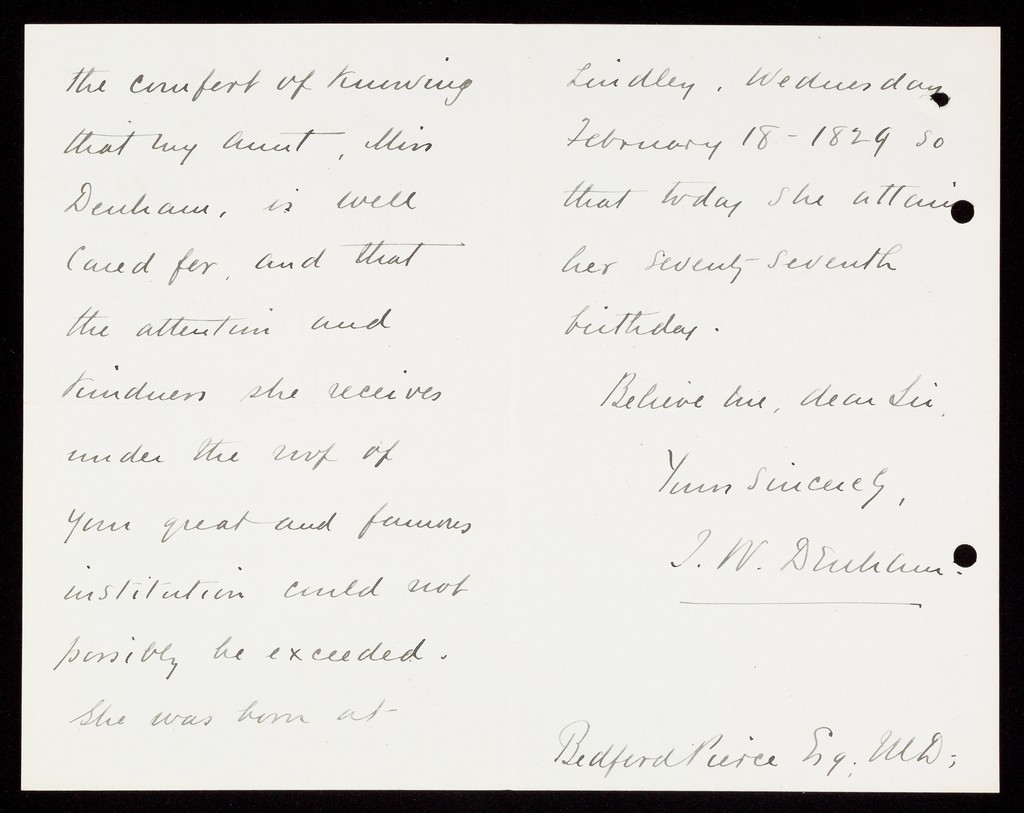 the comfort of knowing
that my aunt, Miss
Denham, is well
cared for, and that
the attention and
kindness she receives
under the roof of
your great and famous
institution could not
possibly be exceeded.
She was born at
Lindley, Wednesday
February 18 - 1829 so
that today she attains
her seventy-seventh
birthday.
Believe me, dear Sir,
Yours sincerely,
J. W. Denham.
Bedford Pierce Esq. M.D;